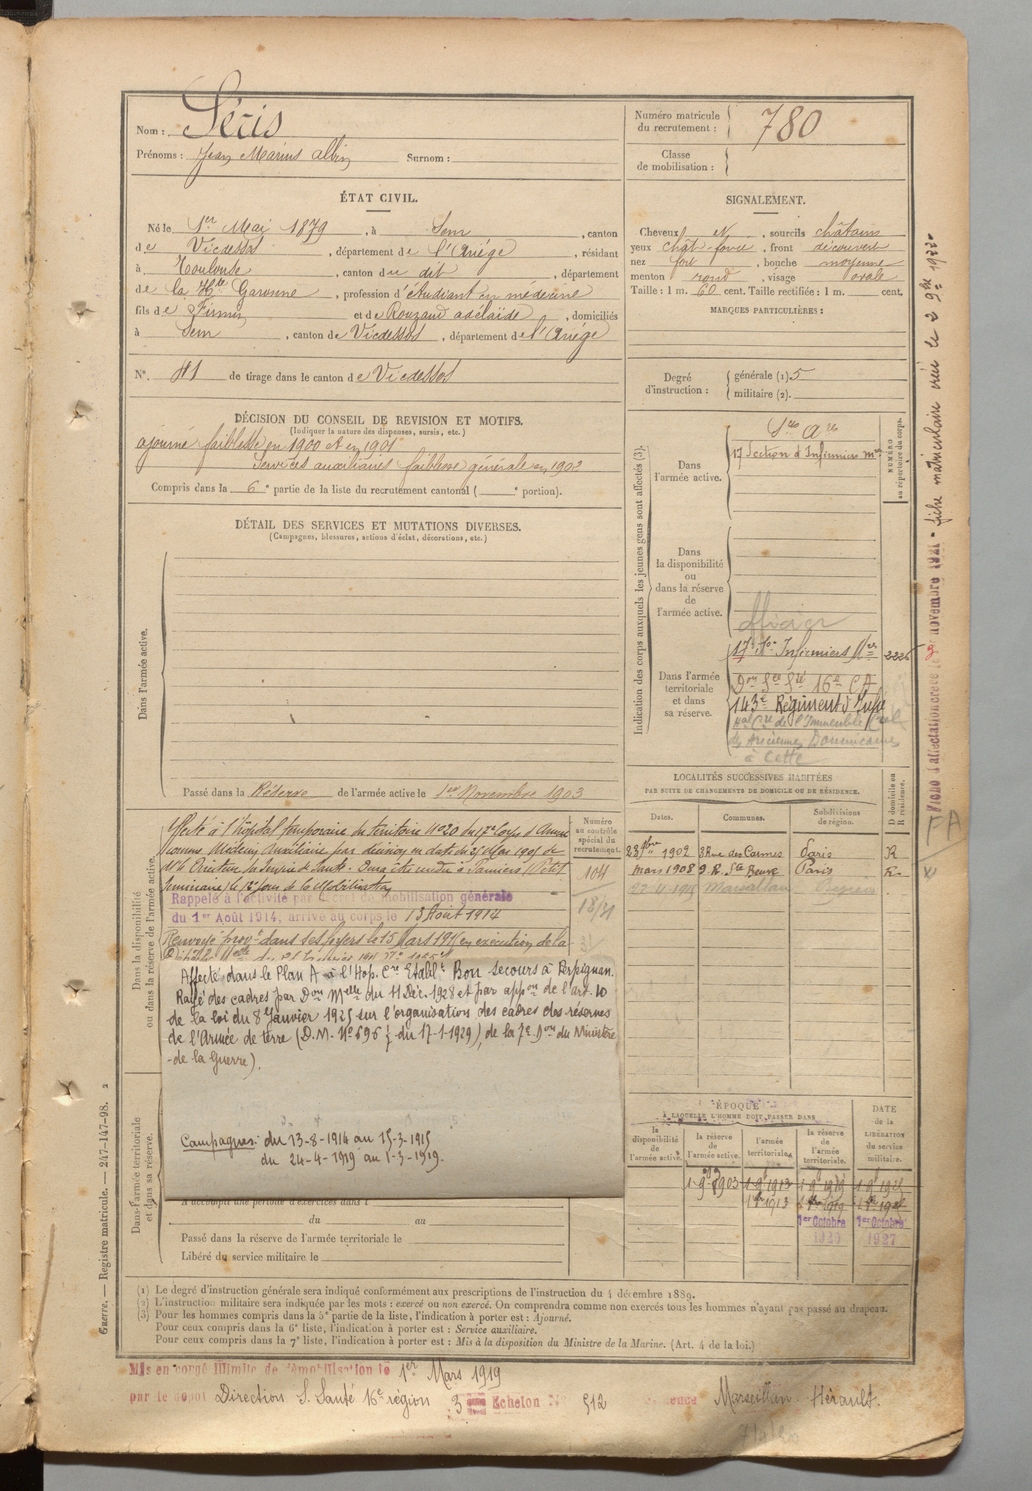 Nom : Séris
Prénoms : Jean Marius Albin Surnom :
Numéro matricule du recrutement : 780
Classe de mobilisation :
ÉTAT CIVIL.
Né le 1er Mai 1879, à Sem, canton
de Vicdessos, département de l'Ariége, résidant
à Toulouse, canton du dit, département
de la Hte Garonne, profession d'étudiant en médecine
fils de Firmin et de Rouzaud adélaïde, domiciliés
à Sem, canton de Vicdessos, département de l'Ariége
N°. 41 de tirage dans le canton de Vicdessos
SIGNALEMENT.
Cheveux N, sourcils châtains
yeux chât-foncé, front découvert
nez fort, bouche moyenne
menton rond, visage ovale
Taille : 1 m. 60 cent. Taille rectifiée : 1 m. cent.
MARQUES PARTICULIÈRES :
Degré d'instruction : générale (1) 5
militaire (2).
DÉCISION DU CONSEIL DE REVISION ET MOTIFS.
(Indiquer la nature des dispenses, sursis, etc.)
ajourné faiblesse en 1900 et en 1901
Services auxiliaires faiblesse générale en 1902
Compris dans la 6e partie de la liste du recrutement cantonal ( e portion).
DÉTAIL DES SERVICES ET MUTATIONS DIVERSES.
(Campagnes, blessures, actions d'éclat, décorations, etc.)
Dans l'armée active.
Passé dans la Réserve de l'armée active le 1er Novembre 1903
Indication des corps auxquels les jeunes gens sont affectés (3).
NUMÉRO au répertoire du corps.
Dans l'armée active.
17 Section d'Infirmiers mres
Dans la disponibilité ou dans la réserve de l'armée active.
Officier
Dans l'armée territoriale et dans sa réserve.
17e Son Infirmiers Mres 2225
Don Sce Sté 16e CA
143e Régiment d'Infie
Hal Cre de l'Immeuble
des Anciennes Dominicaines
à Cette
Dans la disponibilité ou dans la réserve de l'armée active.
Numéro au contrôle spécial du recrutement
104
18/31
Affecté à l'Hôpital temporaire du territoire N° 20 du 17e Corps d'Armée
comme Médecin Auxiliaire par décision en date du 25 Mai 1905 de
Mr le Directeur du Service de Santé.
Séminaire) le 12e jour de la Mobilisation
Rappelé à l'activité par décret de mobilisation générale
du 1er Août 1914, arrivé au corps le 13 Août 1914
Renvoyé provt dans ses foyers le 15 Mars 1915 en exécution de la
Affecté dans le Plan A à l'Hop. Cre Etablt Bon Secours à Perpignan.
Rayé des cadres par Don Melle du 11 Déc. 1928 et par appon de l'art. 10
de la loi du 8 Janvier 1925 sur l'organisation des cadres des réserves
de l'Armée de terre (D.M. N° 696 du 17-1-1929), de la 7e Don du Ministère
de la Guerre).
Campagnes: du 13-8-1914 au 15-3-1915
du 24-4-1919 au 1-3-1919.
Dans l'armée territoriale et dans sa réserve.
A accompli une période d'exercices dans l
du au
Passé dans la réserve de l'armée territoriale le
Libéré du service militaire le
LOCALITÉS SUCCESSIVES HABITÉES
PAR SUITE DE CHANGEMENTS DE DOMICILE OU DE RÉSIDENCE.
Dates. Communes. Subdivisions de région. D domicile ou R résidence.
23 9bre 1902 3 Rue des Carmes Paris R
mars 1908 9 R. Ste Beuve Paris R.
Marseillan
ÉPOQUE
À LAQUELLE L'HOMME DOIT PASSER DANS
la disponibilité de l'armée active.
la réserve de l'armée active.
l'armée territoriale.
la réserve de l'armée territoriale.
DATE de la LIBÉRATION du service militaire.
1 9bre 1903 1 9b 1913 1 9b 1919
1er Octobre 1er Octobre
1920 1927
(1) Le degré d'instruction générale sera indiqué conformément aux prescriptions de l'instruction du 4 décembre 1889.
(2) L'instruction militaire sera indiquée par les mots : exercé ou non exercé. On comprendra comme non exercés tous les hommes n'ayant pas passé au drapeau.
(3) Pour les hommes compris dans la 5e partie de la liste, l'indication à porter est : Ajourné.
Pour ceux compris dans la 6e liste, l'indication à porter est : Service auxiliaire.
Pour ceux compris dans la 7e liste, l'indication à porter est : Mis à la disposition du Ministre de la Marine. (Art. 4 de la loi.)
Mis en congé illimité de démobilisation le 1er Mars 1919
par le dépôt Direction S. Santé 16e région 3ème Echelon N° 512 Marseillan Hérault.
Guerre. — Registre matricule. — 247-147-98. 2
Fiche d'affectation créée le 9 novembre 1921 - fiche matriculaire créée le
FA